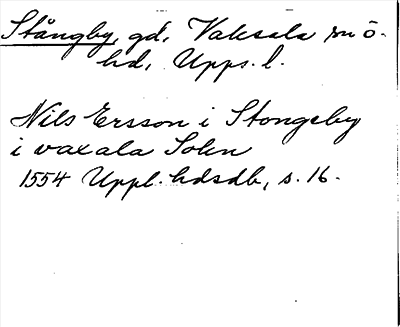 Stångby, gd, Vaksala sn ö.
hd, Upps. l.
Nils Ersson i Stongeby
i vaxala Sokn
1554 Uppl. hdsdb, s. 16.